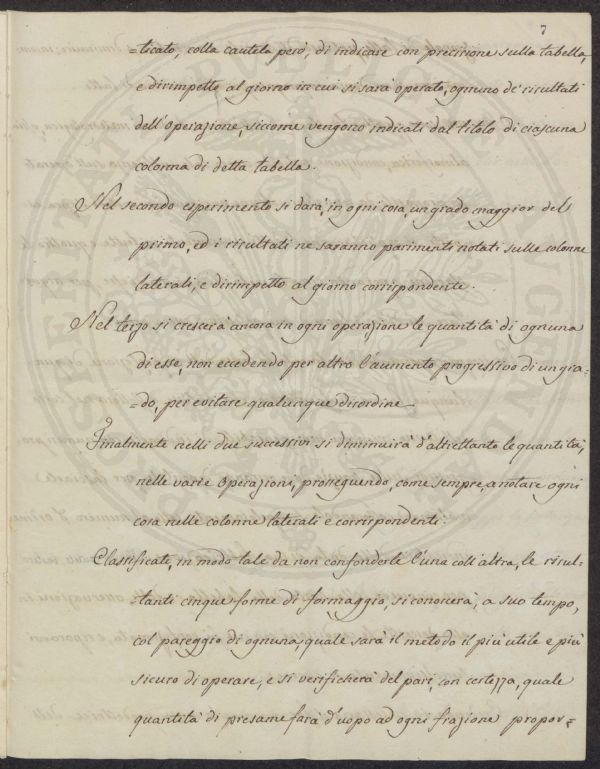 7
=ticato, colla cautela però, di indicare con precisione sulla tabella,
e dirimpetto al giorno in cui si sarà operato, ognuno de' risultati
dell'operazione, siccome vengono indicati dal titolo di ciascuna
colonna di detta tabella.
Nel secondo esperimento si darà, in ogni cosa, un grado maggior del
primo, ed i risultati ne saranno parimenti notati sulle colonne
laterali, e dirimpetto al giorno corrispondente.
Nel terzo si crescerà ancora in ogni operazione le quantità di ognuna
di esse, non eccedendo per altro l'aumento progressivo di un gra=
=do, per evitare qualunque disordine.
Finalmente nelli due successivi si diminuirà d'altrettanto le quantità,
nelle varie operazioni, proseguendo, come sempre, a notare ogni
cosa nelle colonne laterali e corrispondenti.
Classificate, in modo tale da non confonderle l'una coll'altra, le risul=
=tanti cinque forme di formaggio, si conoscerà, a suo tempo,
col pareggio di ognuna, quale sarà il metodo il più utile e più
sicuro di operare, e si verificherà del pari, con certezza, quale
quantità di presame farà d'uopo ad ogni frazione propor=